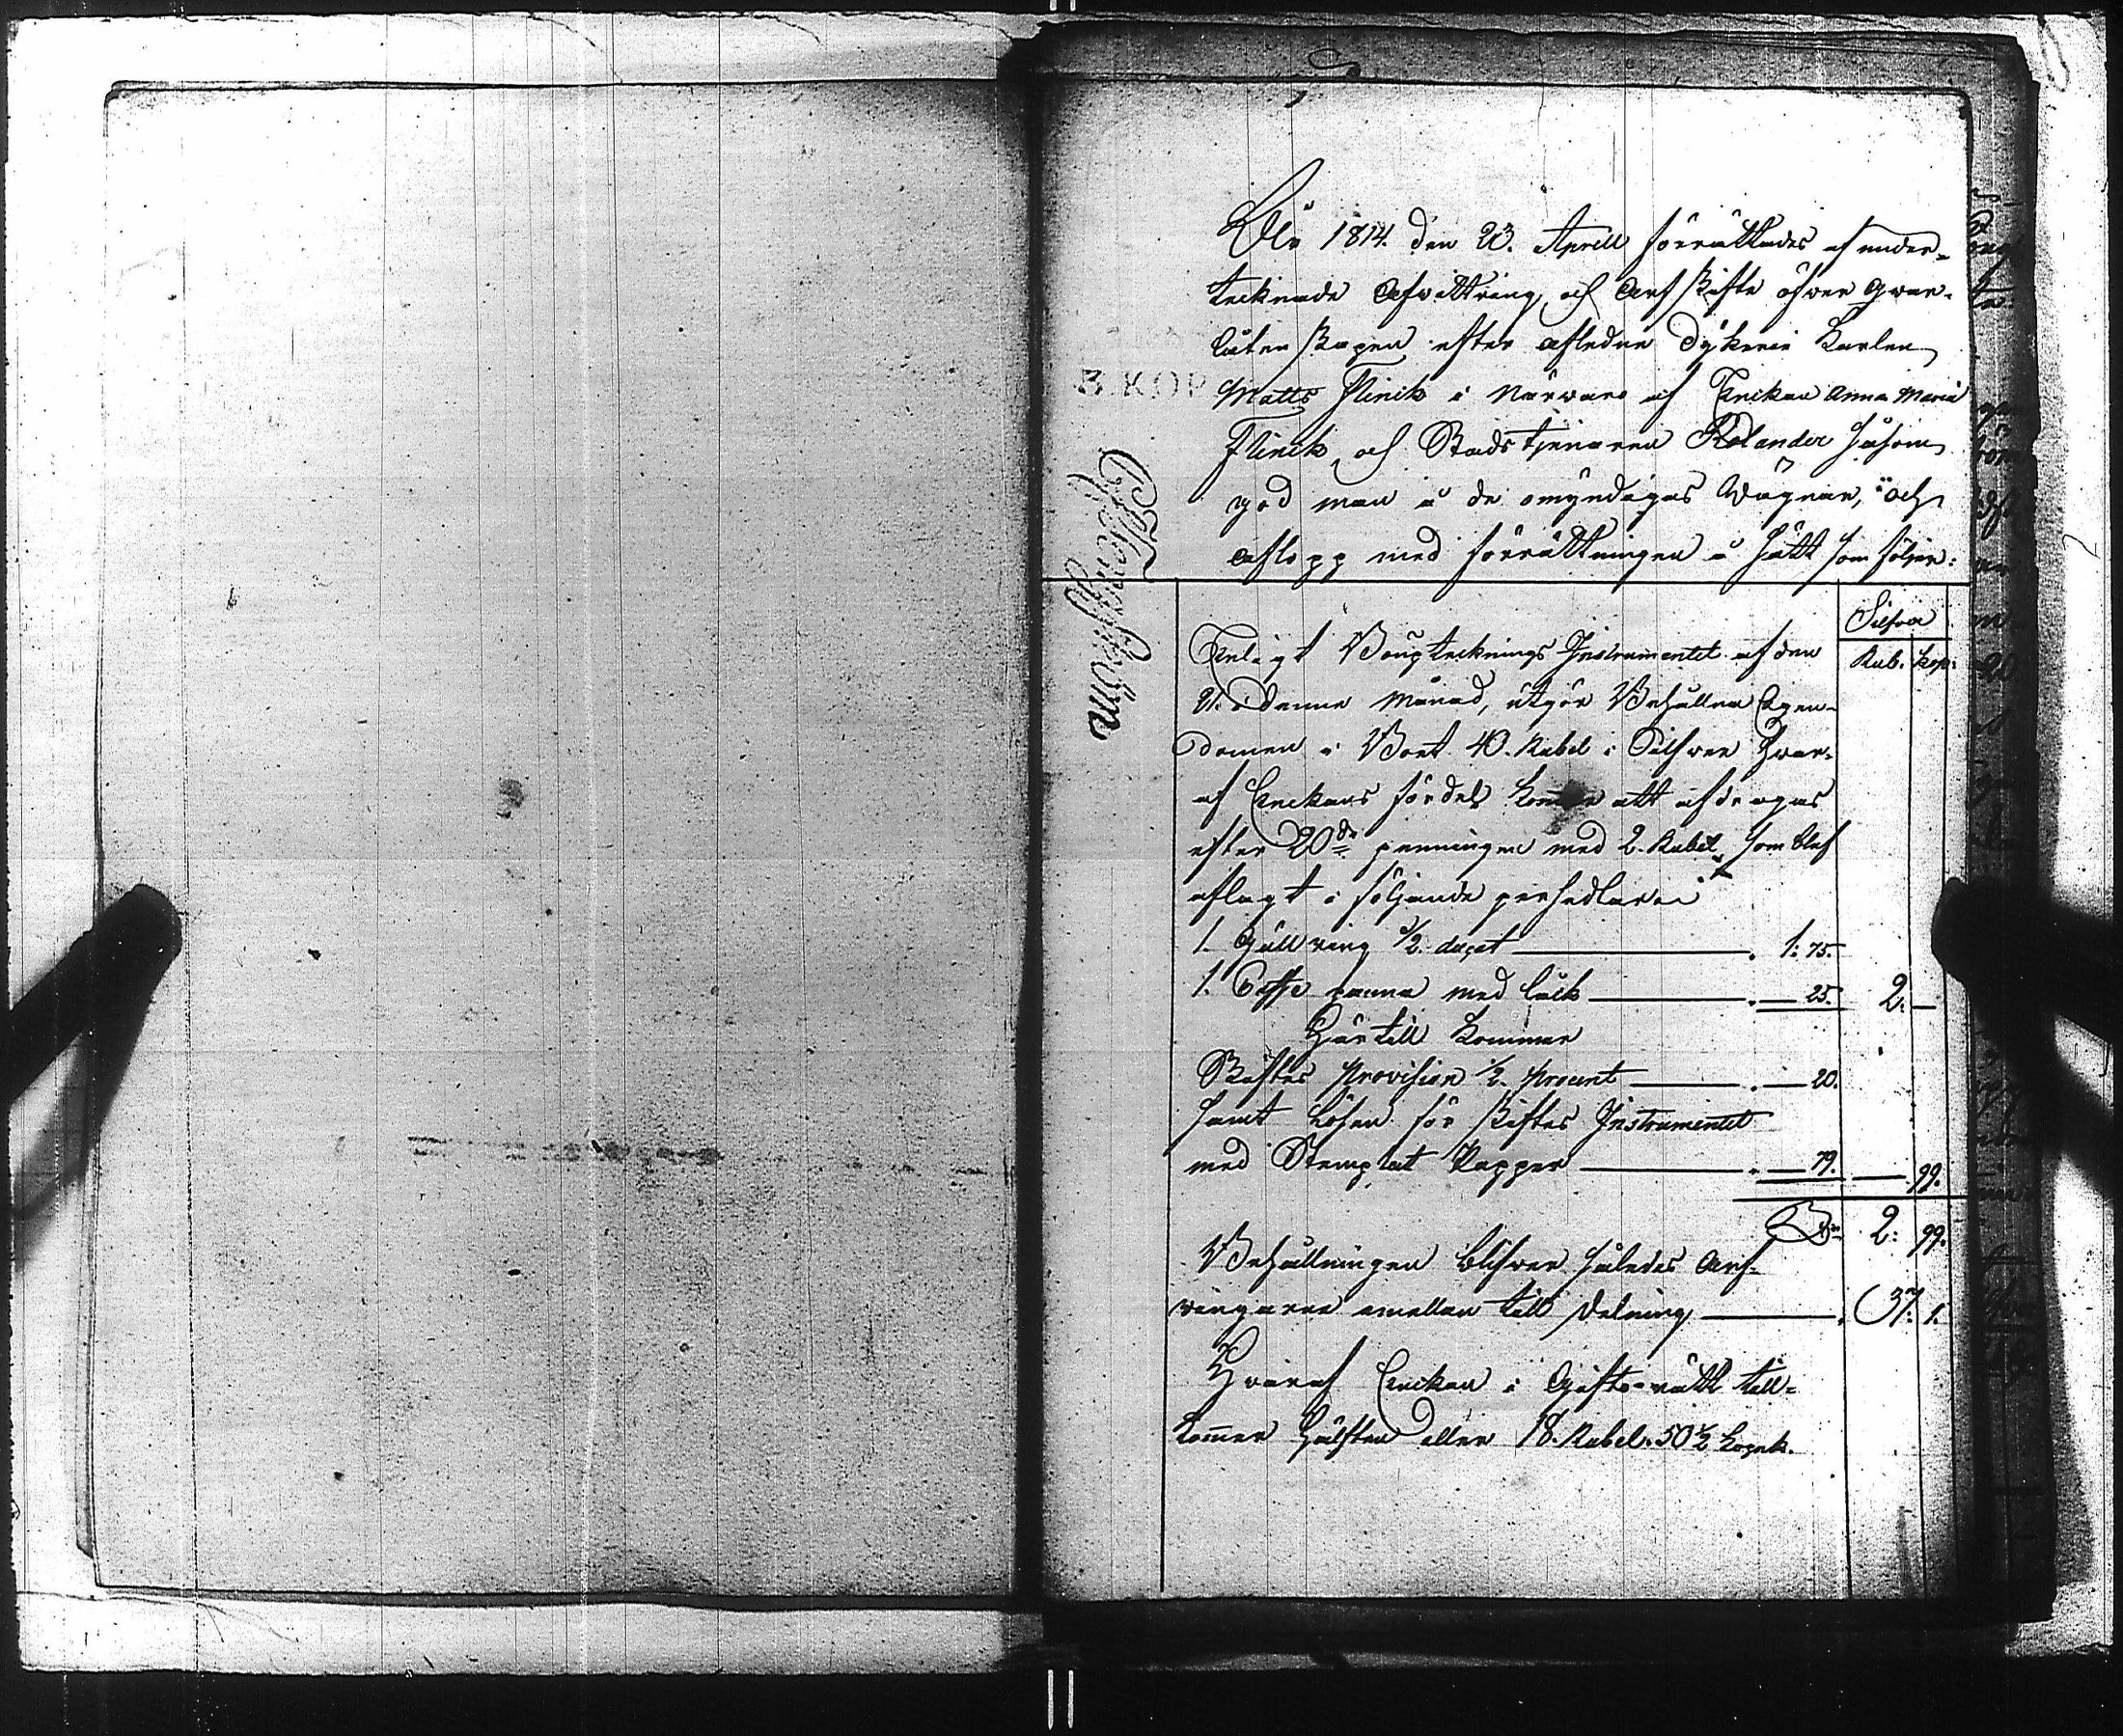 År 1814. den 23. Aprill förrättades af under-
tecknade Afvittring, och Arfskifte öfver qvar-
låtenskapen efter aflidne Dykerie Karlen
3. KOP
Matts Flinck i närvaro af Enckan Anna Maria
Flinck, och Stadstjenaren Rolander såsom
god man å de omyndigas Wägnar, och
aflopp med förrättningen å sätt som följer:
Silfver
Enligt Bouptecknings Instrumentet af den
Rub. kop:
21. i denne Månad, utgör Behållna Egen-
domen i Boet 40. Rubel i Silfver hvar-
af Enckans fördel kommer att afdragas
efter 20de penningen med 2. Rubel, som blef
aflagt i följande persedlar:
1. Gullring 1/2 ducat 1: 75.
1. Caffe panna med låck 25. 2: —
Här till kommer
Skiftes Provision 1/2 Procent 20.
samt Lösen för skiftes Instrumentet
med Stemplat Papper 79. — 99.
2: 99.
Behållningen blifver således Arf-
vingarne emellan till delning 37. 1.
Hvaraf Enckan i Giftorätt till-
kommer hälften eller 18. Rubel. 50 1/2 kopek.